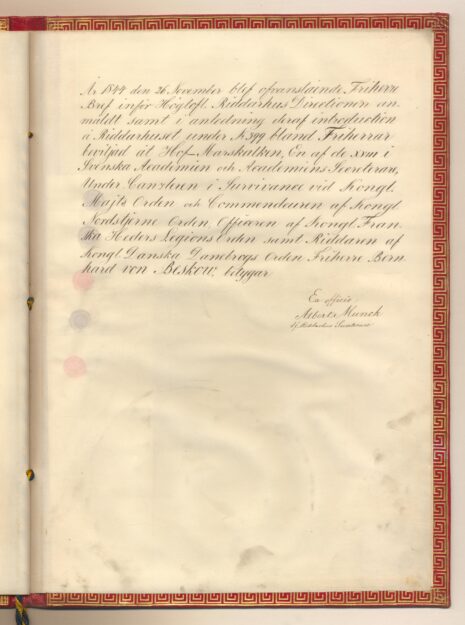 År 1844 den 26 November blef ofvanstående Friherre
Bref inför Höglofl. Riddarhus Directionen an-
mäldt samt i anledning deraf introduction
å Riddarhuset under N 399 bland Friherrar
beviljad åt Hof-Marskalken, En af de XVIII i
Svenska Academien och Academiens Secreterare,
Under Canzleren i Survivance vid Kongl.
Maj:ts Orden och Commendeuren af Kongl
Nordstjerne Orden, Officeren af Kongl Fran-
ska Heders Legions Orden samt Riddaren af
Kongl Danska Danebrogs Orden Friherre Bern-
hard von Beskow, betygar
Ex officio
Albert Munck